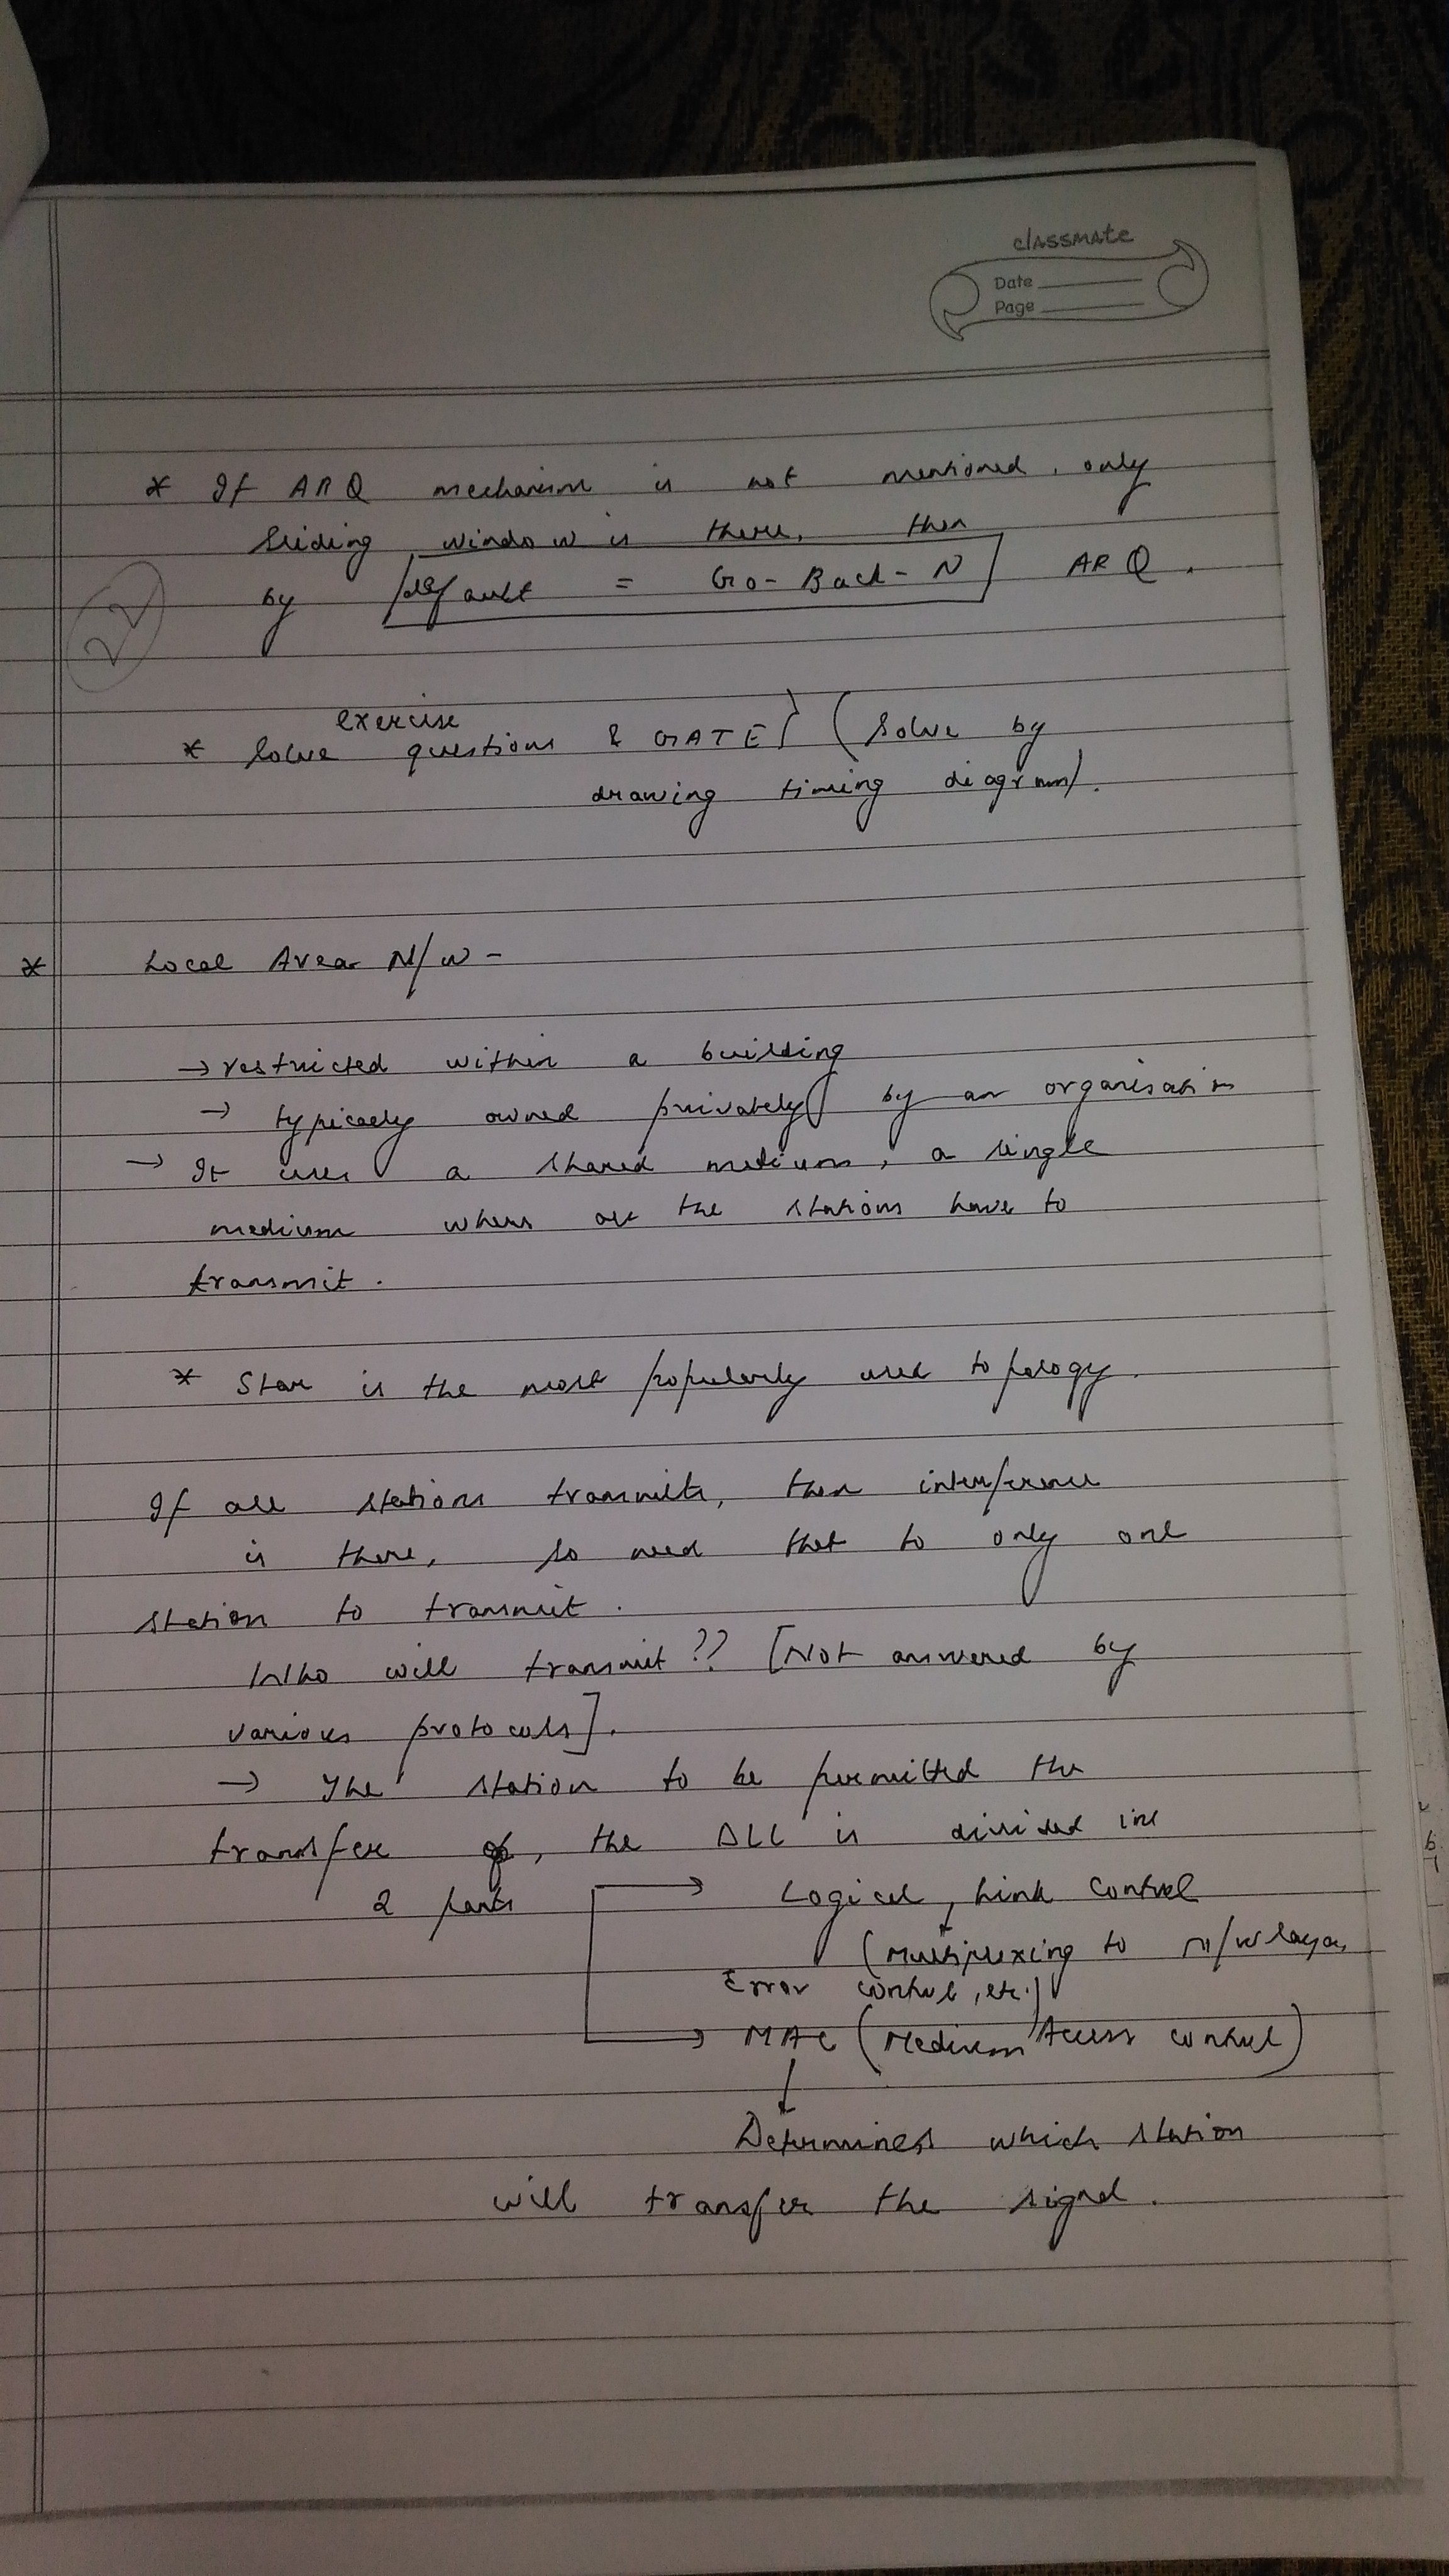 classmate
Date
Page
* If ARQ mechanism is not mentioned, only
sliding window is there, then
by default = Go-Back-N ARQ.
22
exercise
* Solve questions & GATE) (Solve by
drawing timing diagram).
* Local Area N/w -
→ restricted within a building
→ typically owned privately by an organisation
→ It uses a shared medium, a single
medium where all the stations have to
transmit.
* Star is the most popularly used topology.
If all stations transmits, then interference
is there, so need that to only one
station to transmit.
Who will transmit ?? [Not answered by
various protocols].
→ The station to be permitted the
transfer, the DLL is divided into
2 parts → Logical Link Control
(Multiplexing to n/w layer,
Error control, etc.)
→ MAC (Medium Access Control)
Determines which station
will transfer the signal.